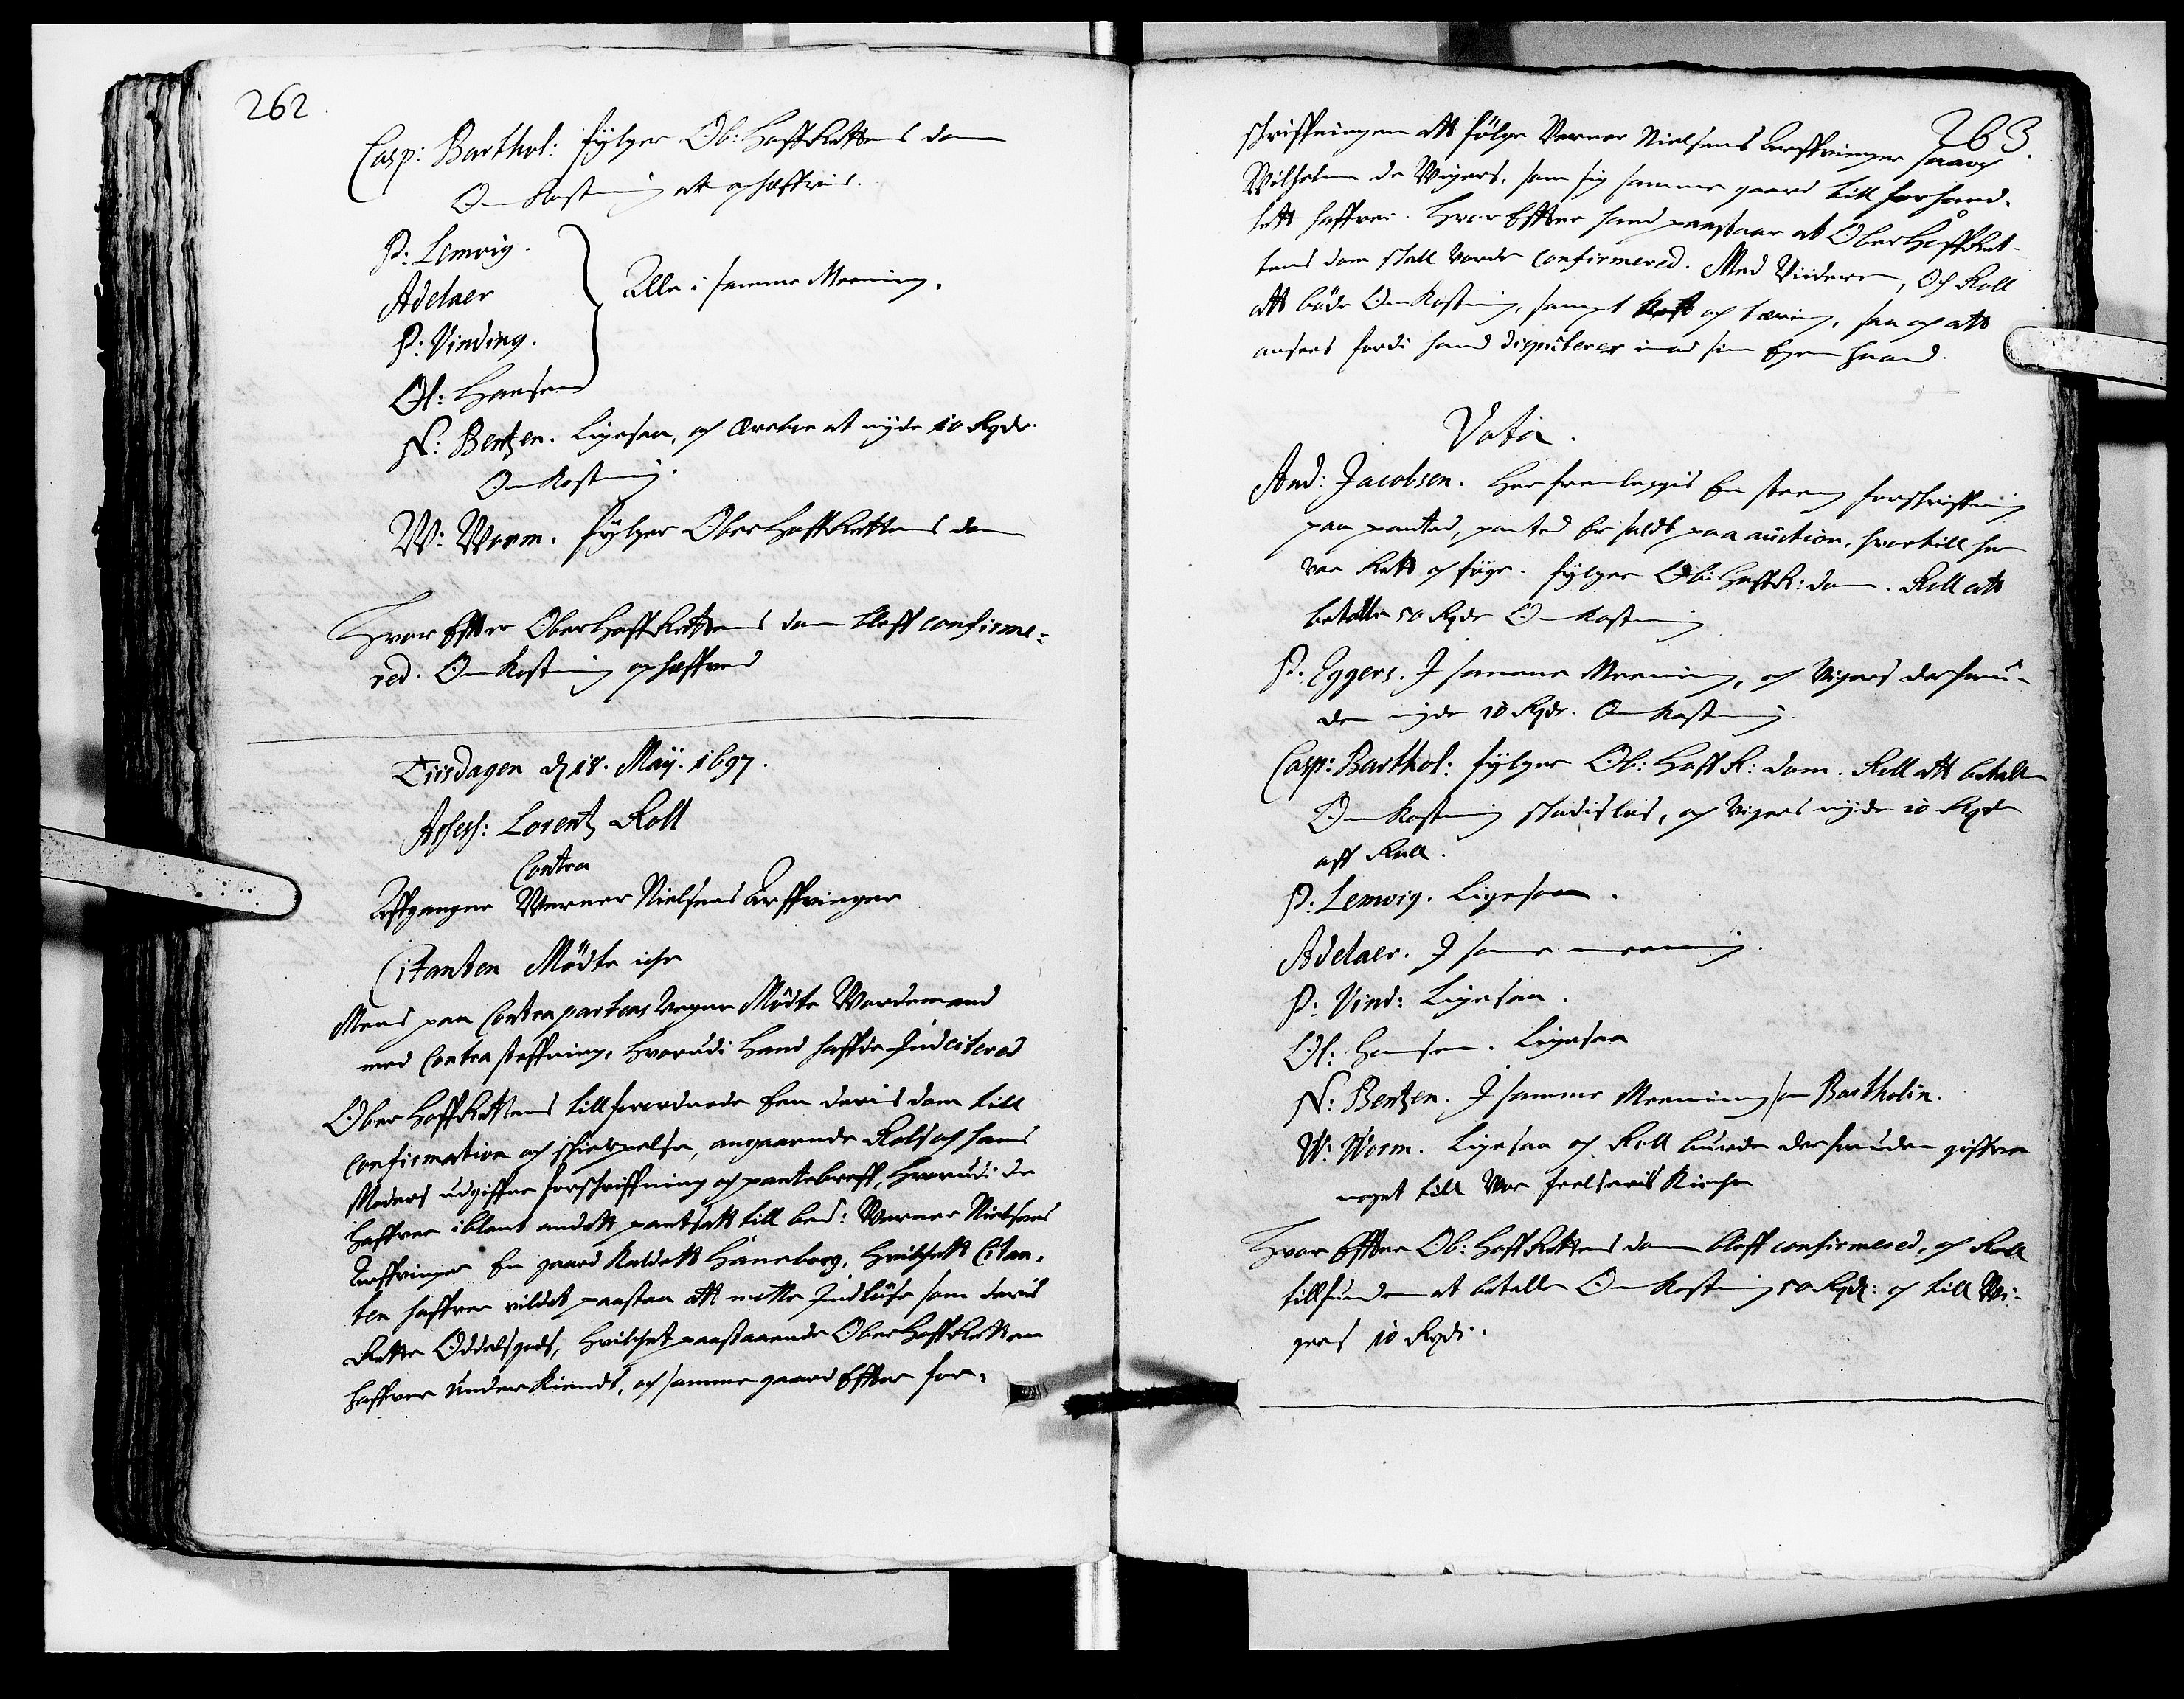 262.
Casp: Barthol: fylger Ob: HoffRettens dom
Omkostning at ophæffvis.
P: Lemvig.
Adelaer
Alle i samme Meening.
P: Vinding.
Ol: Hansen
N: Bentzen. Ligesaa, og at nyde 10 Rxdr.
Omkostning.
W: Worm. fylger OberHoffRettens dom
Hvor Effter OberHoffRettens dom bleff confirme=
red. Omkostning ophæffved
Tiisdagen d 18. Maij. 1697.
Assess: Lorentz Roll
Contra
Affgangne Werner Nielsens Arffvinger
Citanten Mødte iche
Mens paa Contrapartens vegne Mødte Wordemand
med Contrasteffning, hvorudi hand haffde Indciteret
OberHoffRettens tillforordnede sin deris dom till
Confirmation og schierpelse, angaaende Rolls og hans
Moders udgiffne forschriffning og pantebreff, hvorudi de
haffver iblant andett pantsatt till bend: Werner Nielsens
Arffvinger En gaard kaldett Håneborg, hvilchett Citan-
ten haffver vildet paastaa att motte Indløse som deris
Rette Oddelsgods, hvilchet paastaaende OberHoffRetten
haffver underkiendt, og samme gaard Effter for-
263.
schriffningen att følge Verner Nielsens Arffvinger saavel
Wilhelm de Wigers, som sig samme gaard till forhand-
lett haffver. Hvor Effter hand paastaar at OberHoffRet-
tens dom skall vorde confirmered. Med Videre, Og Roll
att bøde Omkostning, sampt kost og tæring, saa og att
ansees fordi hand disputerer imod sin Egen haand.
Vota.
And: Jacobsen. Her fremlegges En streng forschriffning
paa pantet, pantet Er soldt paa auction, hvortill hand
var Rett og føye. fylger Ob: HoffR: dom. Roll att
betalle 50 Rxdr Omkostning
P. Eggers. J samme Meening, og Vigers desforu-
den nyde 10 Rxdr. Omkostning.
Casp: Barthol: fylger Ob: HoffR: dom. Roll att betalle
Omkostning schadisløs, og Vigers nyde 10 Rxdr
aff Roll.
P: Lemvig. Ligesaa.
Adelaer. J samme meening.
P: Vind: Ligesaa.
Ol: Hansen. Ligesaa
N: Bentzen. J samme Meening som Bartholin.
W: Worm. Ligesaa og Roll burde desforuden giffve
noget till Vor frelseris Kirche
Hvor Effter Ob: HoffRettens dom bleff confirmered, og Roll
tillfunden at betalle Omkostning 50 Rxdr: og till Wi-
gers 10 Rxdr.